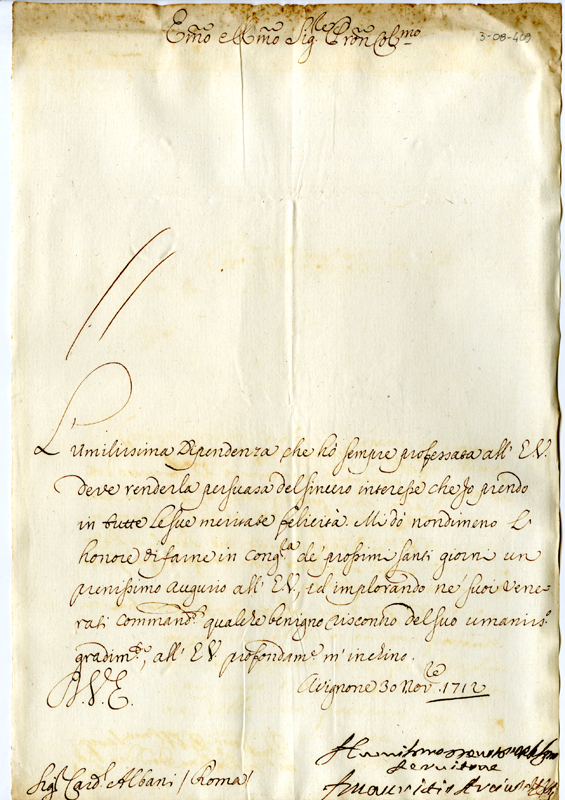 Em̃o e Rm̃o Sig.re Pron̄ Col.mo
3-08-409
L'umilissima Dependenza che hò sempre professata all' E.V.
deve renderla persuasa del sincero interesse che Jo prendo
in tutte le sue meritate felicità. Mi dò nondimeno l'
honore di farne in Cong.ra de' prossimi santi giorni un
pienissimo augurio all' E.V., ed implorando ne' suoi vene-
rati command.ti qualche benigno riscontro del suo umaniss.o
gradim.to, all' E.V. profondam.te m' inchino.
D.V.E.
Avignone 30 Nov.re 1712
Humilissimo
servitore
Sig.r Card.l Albani / Roma /
Mauritio